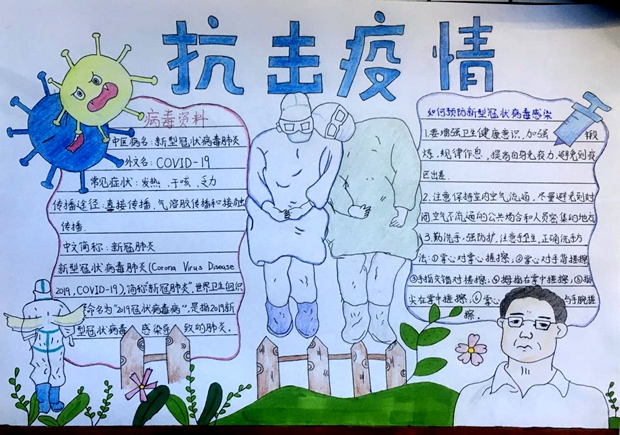 抗击疫情
病毒资料
中医病名：新型冠状病毒肺炎
外文名：COVID-19
常见症状：发热、干咳、乏力
传播途径：直接传播、气溶胶传播和接触
传播.
中文简称：新冠肺炎
新型冠状病毒肺炎(Corona Virus Disease
2019，COVID-19)，简称"新冠肺炎"，世界卫生组织
命名为"2019冠状病毒病"，是指2019新
型冠状病毒感染导致的肺炎。
如何预防新型冠状病毒感染
1.要增强卫生健康意识，加强锻
炼，规律作息，提高自身免疫力，避免到疫
区出差.
2.注意保持室内空气流通，尽量避免到封
闭空气不流通的公共场合和人员密集的地方
3.勤洗手，强防护，注意手卫生，正确洗手方
法：①掌心对掌心搓擦，②掌心对手背搓擦
③手指交错对搓擦，④拇指在掌中搓擦，⑤指
尖在掌中搓擦，⑥掌心 与手腕搓
擦.